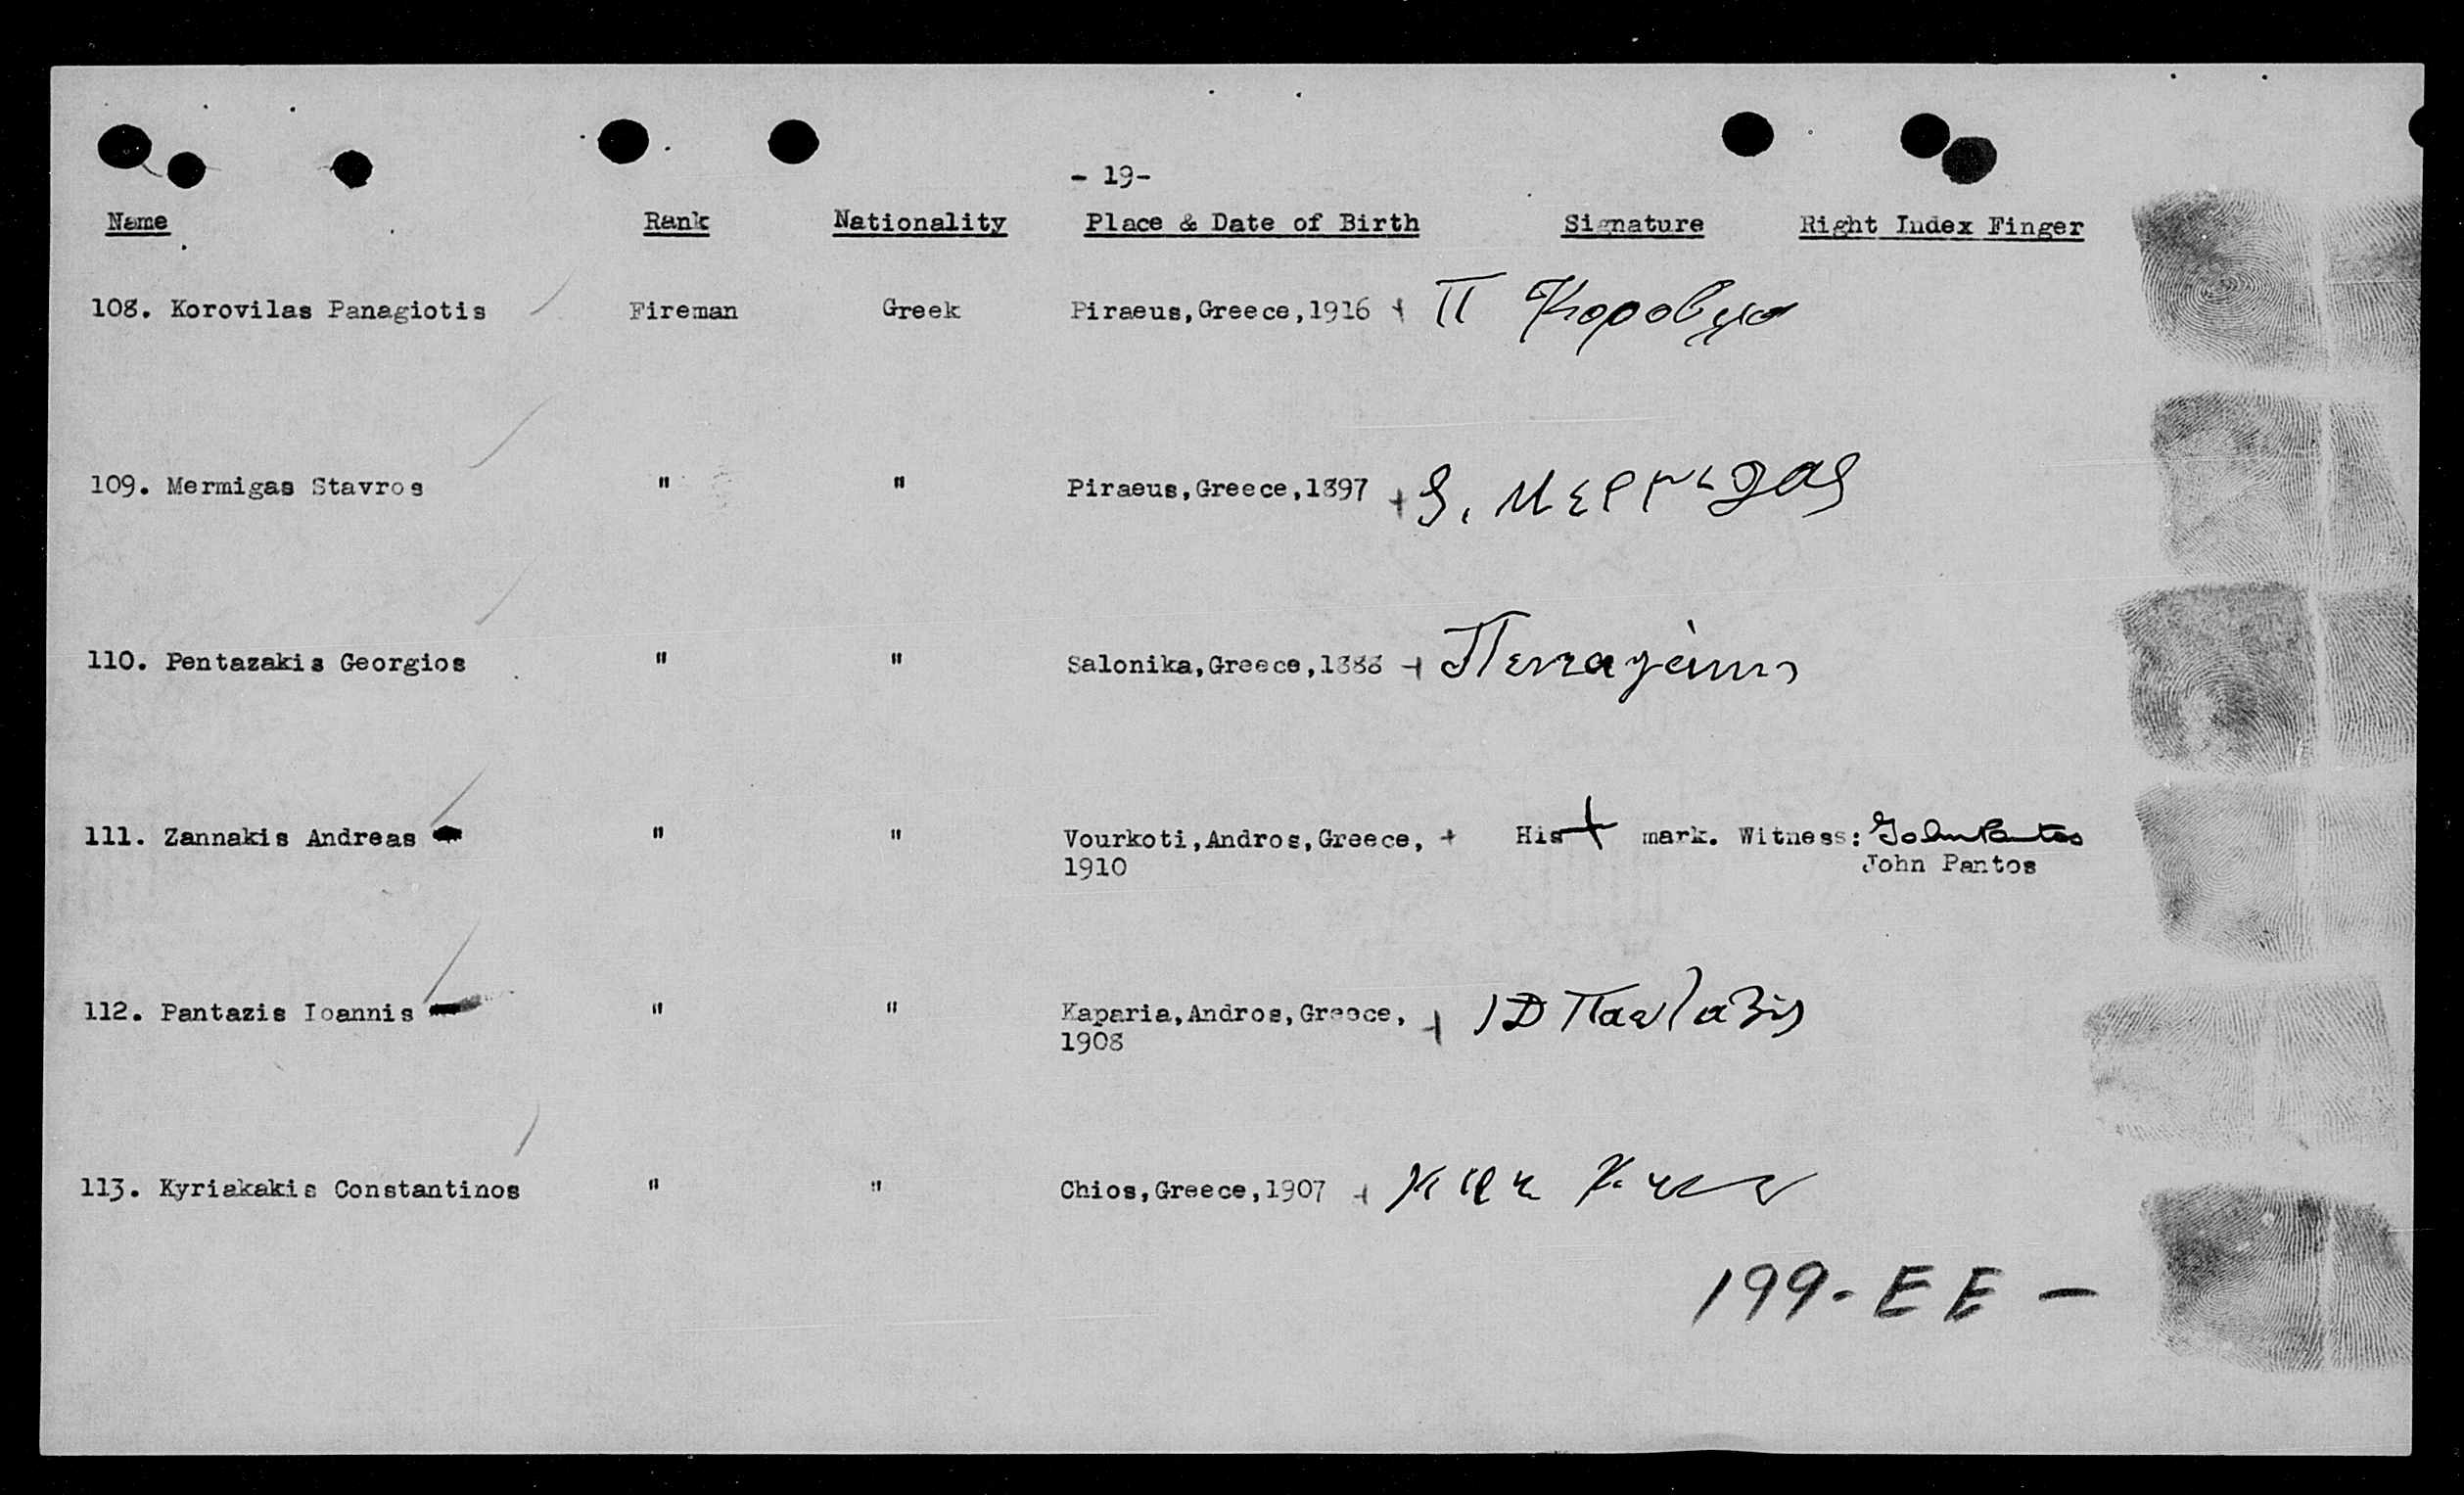 - 19-
Name Rank Nationality Place & Date of Birth Signature Right Index Finger
108. Korovilas Panagiotis Fireman Greek Piraeus,Greece,1916 Π Κοροβιλα
109. Mermigas Stavros " " Piraeus,Greece,1897 S. Μερμιγας
110. Pentazakis Georgios " " Salonika,Greece,1888 Πενταζάκης
111. Zannakis Andreas " " Vourkoti,Andros,Greece, His + mark. Witness: John Pantos
1910 John Pantos
112. Pantazis Ioannis " " Kaparia,Andros,Greece, ΙΔ Πανταζις
1908
113. Kyriakakis Constantinos " " Chios,Greece,1907
199-EE-